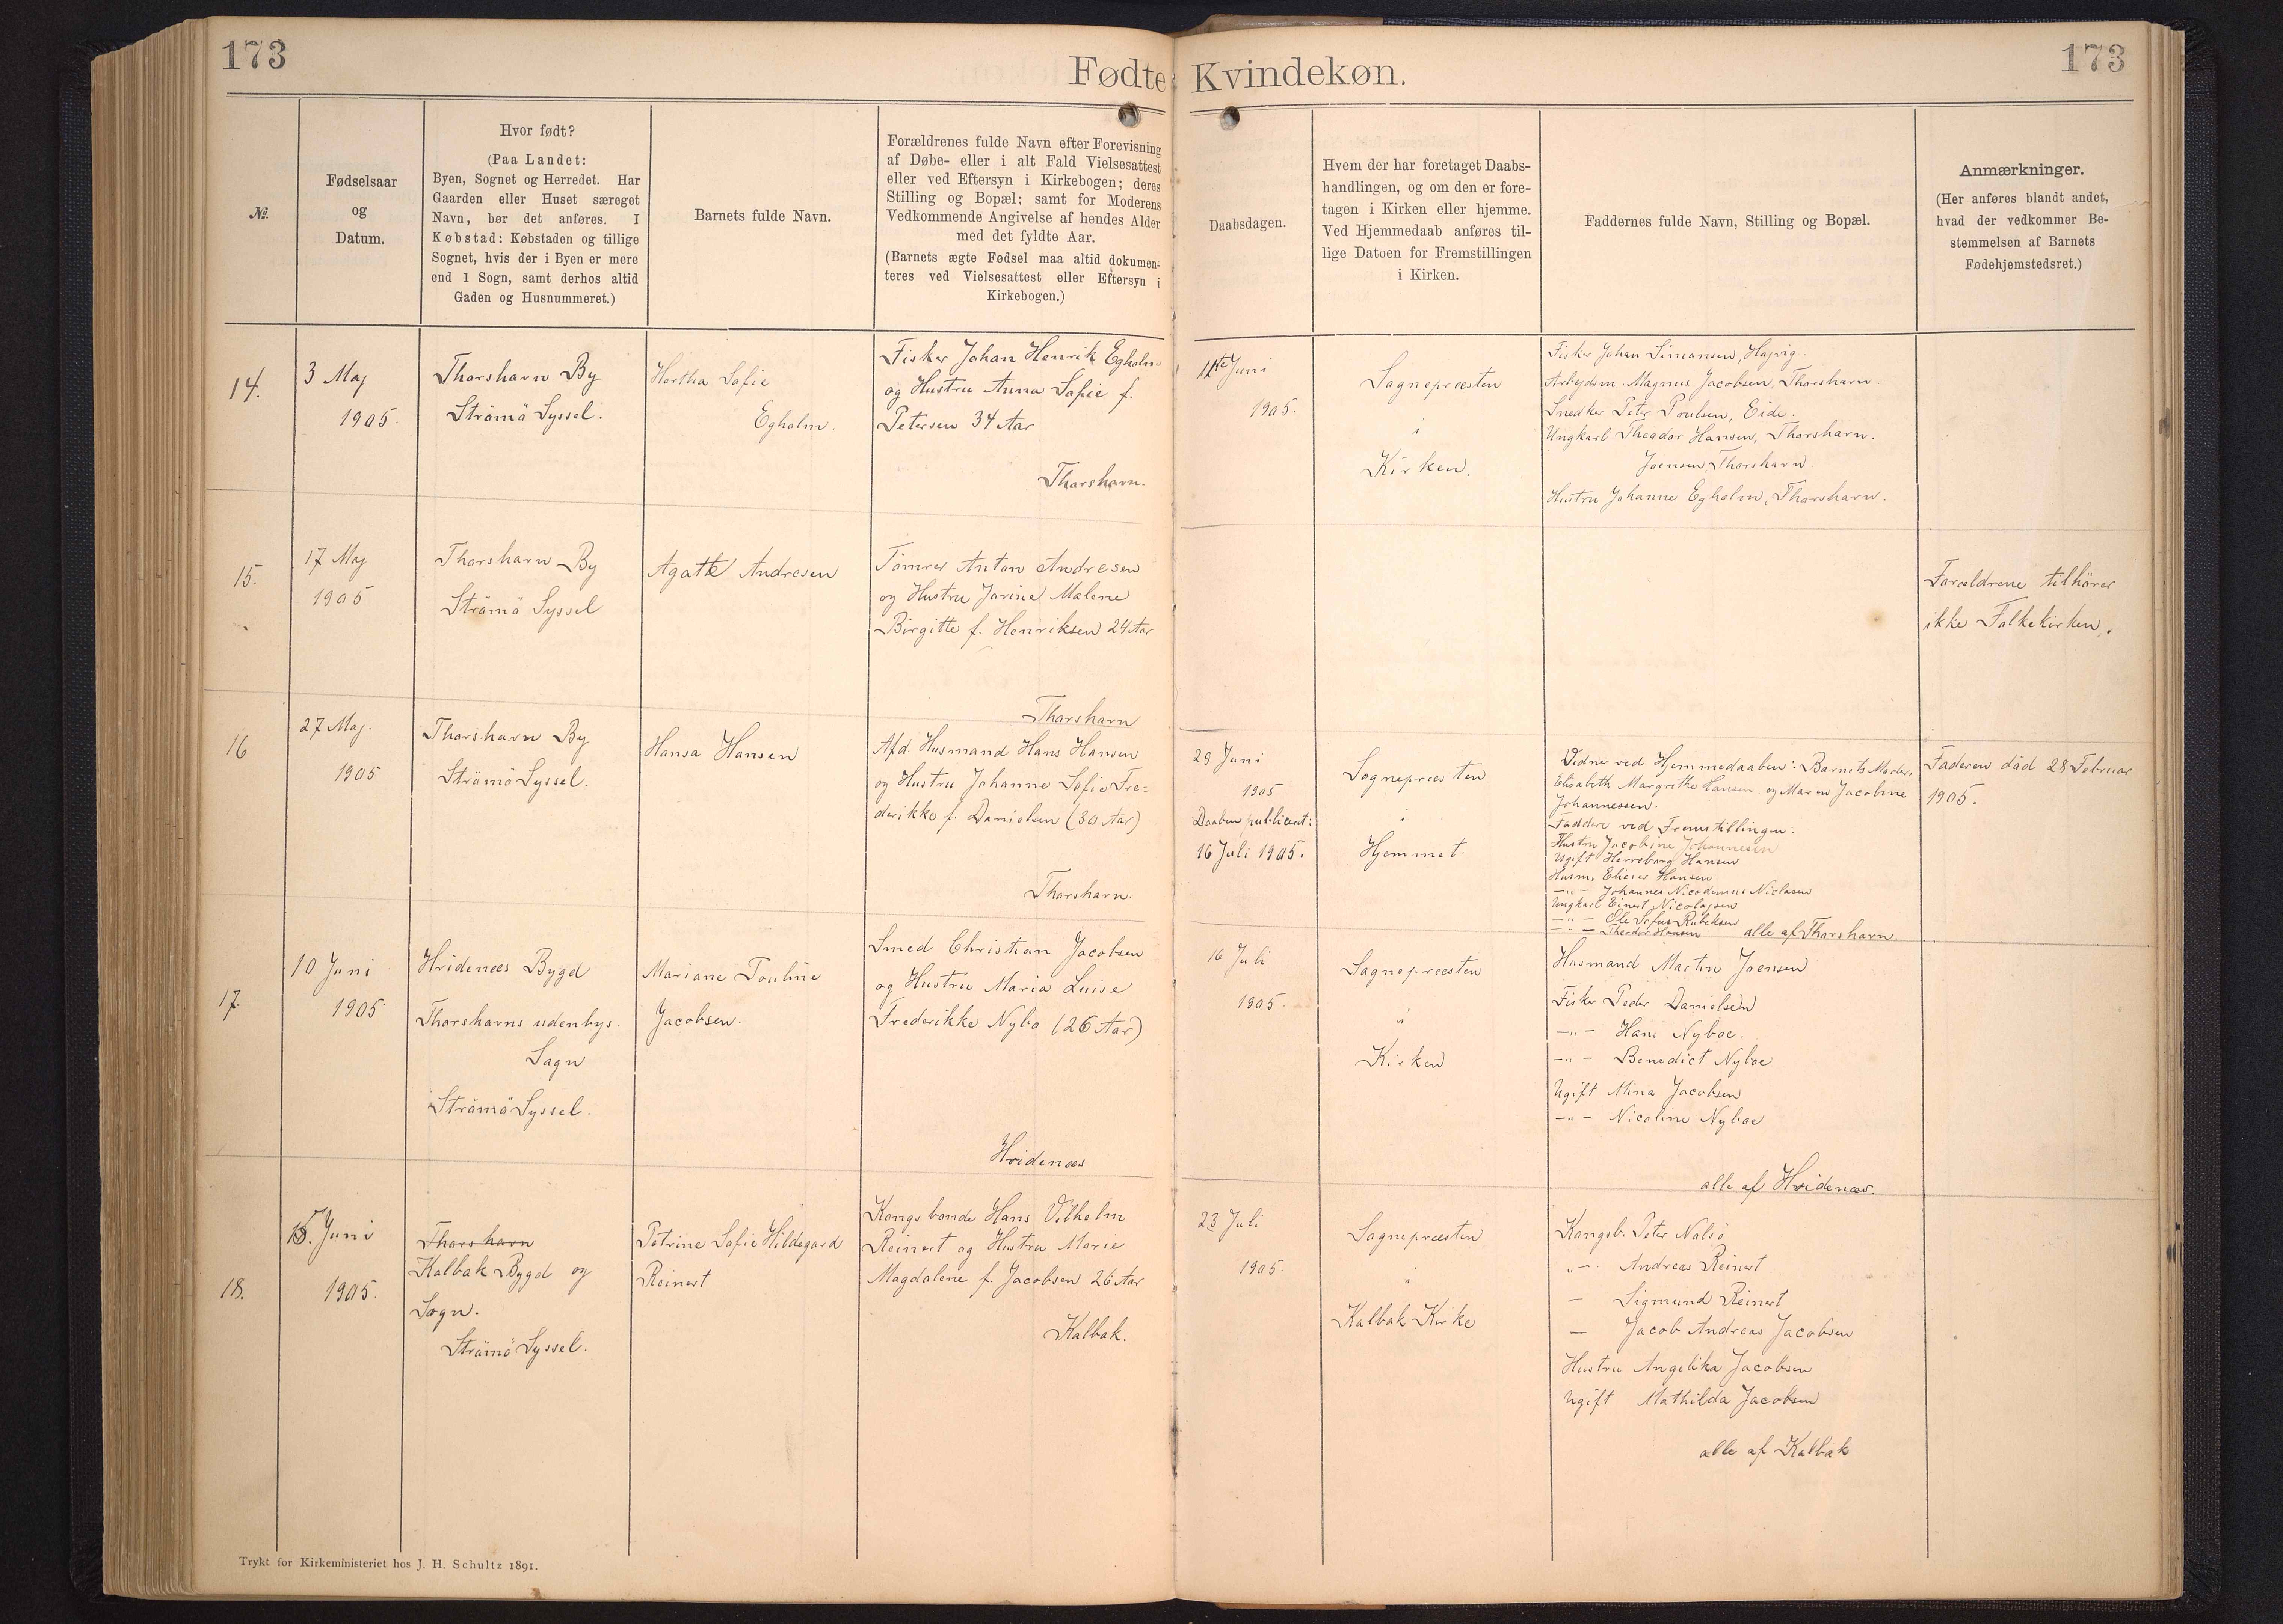 173
Fødte Kvindekøn.
173
№.
Fødselsaar
og
Datum.
Hvor født?
(Paa Landet:
Byen, Sognet og Herredet. Har
Gaarden eller Huset særeget
Navn, bør det anføres. I
Købstad: Købstaden og tillige
Sognet, hvis der i Byen er mere
end 1 Sogn, samt derhos altid
Gaden og Husnummeret.)
Barnets fulde Navn.
Forældrenes fulde Navn efter Forevisning
af Døbe- eller i alt Fald Vielsesattest
eller ved Eftersyn i Kirkebogen; deres
Stilling og Bopæl; samt for Moderens
Vedkommende Angivelse af hendes Alder
med det fyldte Aar.
(Barnets ægte Fødsel maa altid dokumen-
teres ved Vielsesattest eller Eftersyn i
Kirkebogen.)
Daabsdagen.
Hvem der har foretaget Daabs-
handlingen, og om den er fore-
tagen i Kirken eller hjemme.
Ved Hjemmedaab anføres til-
lige Datoen for Fremstillingen
i Kirken.
Faddernes fulde Navn, Stilling og Bopæl.
Anmærkninger.
(Her anføres blandt andet,
hvad der vedkommer Be-
stemmelsen af Barnets
Fødehjemstedsret.)
14.
3 Maj
1905.
Thorshavn By
Strömö Syssel.
Hertha Sofie
Egholm.
Fisker Johan Henrik Egholm
og Hustru Anna Sofie f.
Petersen 34 Aar
Thorshavn.
Juni
1905.
Sognepræsten
i
Kirken.
Fisker Johan Simonsen, Hojvig.
Arbejdsm. Magnus Jacobsen, Thorshavn.
Snedker Peter Poulsen, Eide.
Ungkarl Theodor Hansen, Thorshavn.
Joensen, Thorshavn.
Hustru Johanne Egholm, Thorshavn.
15.
17 Maj
1905
Thorshavn By
Strömö Syssel
Agathe Andresen
Tömrer Anton Andresen
og Hustru Jorine Malene
Birgitte f. Henriksen 24 Aar
Thorshavn
Forældrene tilhörer
ikke Folkekirken.
16
27 Maj.
1905
Thorshavn By
Strömö Syssel.
Hansa Hansen
Afd. Husmand Hans Hansen
og Hustru Johanne Sofie Fre=
derikke f. Danielsen (30 Aar)
Thorshavn.
29 Juni
1905
Daaben publiceret:
16 Juli 1905.
Sognepræsten
i
Hjemmet.
Vidner ved Hjemmedaaben: Barnets Moder,
Elisabeth Margrethe Hansen og Maren Jacobine
Johannessen.
Faddere ved Fremstillingen:
Hustru Jacobine Johannesen
Ugift Herreborg Hansen
Husm. Elieser Hansen
-„- Johannes Nicodemus Niclasen
Ungkarl Einert Nicolajsen
-„- Ole Sofus Rubeksen
-„- Theodor Hansen alle af Thorshavn.
Faderen död 28 Februar
1905.
17.
10 Juni
1905
Hvidenæs Bygd
Thorshavns udenbys.
Sogn
Strömö Syssel.
Mariane Pouline
Jacobsen.
Smed Christian Jacobsen
og Hustru Maria Luise
Frederikke Nybo (26 Aar)
Hvidenæs
16 Juli
1905.
Sognepræsten
i
Kirken
Husmand Martin Joensen
Fisker Peder Danielsen
-„- Hans Nyboe.
-„- Benedict Nyboe
Ugift Mina Jacobsen
-„- Nicoline Nyboe
alle af Hvidenæs.
18.
15. Juni
1905.
Thorshavn
Kalbak Bygd og
Sogn.
Strömö Syssel.
Petrine Sofie Hildegard
Reinert
Kongsbonde Hans Vilhelm
Reinert og Hustru Marie
Magdalene f. Jacobsen 26 Aar
Kalbak.
23 Juli
1905.
Sognepræsten
i
Kalbak Kirke
Kongsb. Peter Nolsö
„- Andreas Reinert
- Sigmund Reinert
- Jacob Andreas Jacobsen
Hustru Angelika Jacobsen
Ugift Mathilda Jacobsen
alle af Kalbak
Trykt for Kirkeministeriet hos J. H. Schultz 1891.